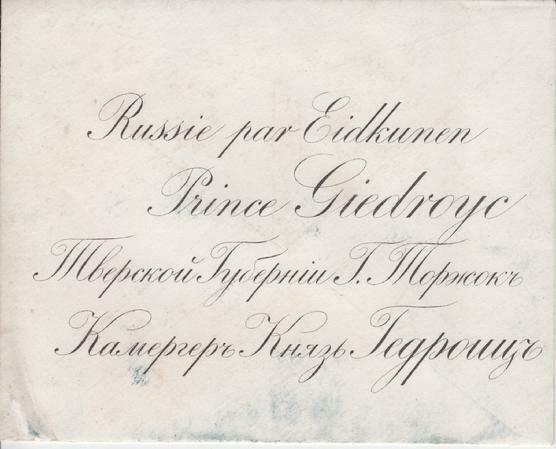 Russie par Eidkunen
Prince Giedroyc
Тверской Губерніи Г. Торжокъ
Камергеръ Князь Гедроицъ